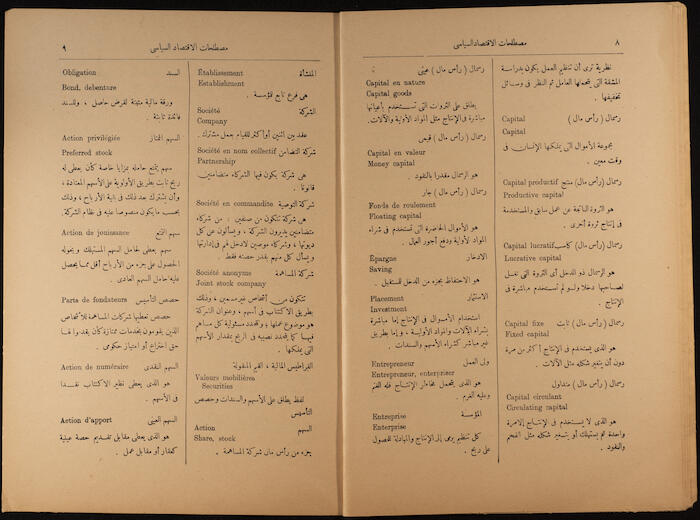 ٨
مصطلحات الاقتصاد السياسى
نظرية ترى أن تنظيم العمل يكون بدراسة
المشقة التى يتحملها العامل ثم النظر فى وسائل
تخفيفها .
Capital رسمال ( رأس مال )
Capital
مجموعة الأموال التى يملكها الإنسان فى
وقت معين .
Capital productif رسمال (رأس مال) منتج
Productive capital
هو الثروة الناتجة عن عمل سابق والمستخدمة
فى إنتاج ثروة أخرى .
Capital lucratif رسمال (رأس مال) كاسب
Lucrative capital
هو الرسمال ذو الدخل أى الثروة التى تغل
لصاحبها دخلا ولو لم تستخدم مباشرة فى
الإنتاج .
Capital fixe رسمال ( رأس مال ) ثابت
Fixed capital
هو الذى يستخدم فى الإنتاج أكثر من مرة
دون أن يتغير شكله مثل الآلات .
رسمال ( رأس مال ) متداول
Capital circulant
Circulating capital
هو الذى لا يستخدم فى الإنتاج إلا مرة
واحدة ثم يستهلك أو يتغير شكله مثل الفحم
والنقود .
رسمال ( رأس مال ) عينى
Capital en nature
Capital goods
يطلق على الثروات التى تستخدم بأعيانها
مباشرة فى الإنتاج مثل المواد الأولية والآلات .
رسمال ( رأس مال ) قيمى
Capital en valeur
Money capital
هو الرسمال مقدرا بالنقود .
رسمال ( رأس مال ) جار
Fonds de roulement
Floating capital
هو الأموال الحاضرة التى تستخدم فى شراء
المواد الأولية ودفع أجور العمال .
Épargne الادخار
Saving
هو الاحتفاظ بجزء من الدخل للمستقبل .
Placement الاستثمار
Investment
استخدام الأموال فى الإنتاج إما مباشرة
بشراء الآلات والمواد الأولية ، وإما بطريق
غير مباشر كشراء الأسهم والسندات .
Entrepreneur ولى العمل
Entrepreneur, enterpriser
هو الذى يتحمل مخاطر الإنتاج فله الغنم
وعليه الغرم .
Entreprise المؤسسة
Enterprise
كل تنظيم يرمى إلى الإنتاج والمبادلة للحصول
على ربح .
٩
مصطلحات الاقتصاد السياسى
Établissement المنشأة
Establishment
هى فرع تابع لمؤسسة .
Société الشركة
Company
عقد بين اثنين أو أكثر للقيام بعمل مشترك .
Société en nom collectif شركة التضامن
Partnership
هى شركة يكون فيها الشركاء متضامنين
قانونا .
Société en commandite شركة التوصية
هى شركة تتكون من صنفين : من شركاء
متضامنين يديرون الشركة ، ويسألون عن كل
ديونها ، وشركاء موصين لا دخل لهم فى إدارتها
ويسأل كل منهم بقدر حصته فقط .
Société anonyme شركة المساهمة
Joint stock company
تتكون من أشخاص غير معدودين ، وذلك
بطريق الاكتتاب فى أسهم ، وعنوان الشركة
هو موضوع عملها ، وتحدد مسئولية كل مساهم
فيها كما يتحدد نصيبه فى الربح بمقدار الأسهم
التى يملكها .
القراطيس المالية ، القيم المنقولة
Valeurs mobilières
Securities
لفظ يطلق على الأسهم والسندات وحصص
التأسيس
Action السهم
Share, stock
جزء من رأس مال شركة المساهمة .
Obligation السند
Bond, debenture
ورقة مالية مثبتة لقرض حاصل ، وللسند
فائدة ثابتة .
Action privilégiée السهم الممتاز
Preferred stock
سهم يمتع حامله بمزايا خاصة كأن يعطى له
ربح ثابت بطريق الأولوية على الأسهم المعتادة ،
وأن يشترك بعد ذلك فى بقية الأرباح ، وذلك
بحسب ما يكون منصوصا عليه فى نظام الشركة .
Action de jouissance سهم التمتع
سهم يعطى لحامل السهم المستهلك ويخوله
الحصول على جزء من الأرباح أقل مما يحصل
عليه حامل السهم العادى .
Parts de fondateurs حصص التأسيس
حصص تعطيها شركات المساهمة للأشخاص
الذين يقومون بخدمات ممتازة كأن يقدموا لها
حق اختراع أو امتياز حكومى .
Action de numéraire السهم النقدى
هو الذى يعطى نظير الاكتتاب نقدا
فى الأسهم .
Action d'apport السهم العينى
هو الذى يعطى مقابل تقديم حصة عينية
كعقار أو مقابل عمل .